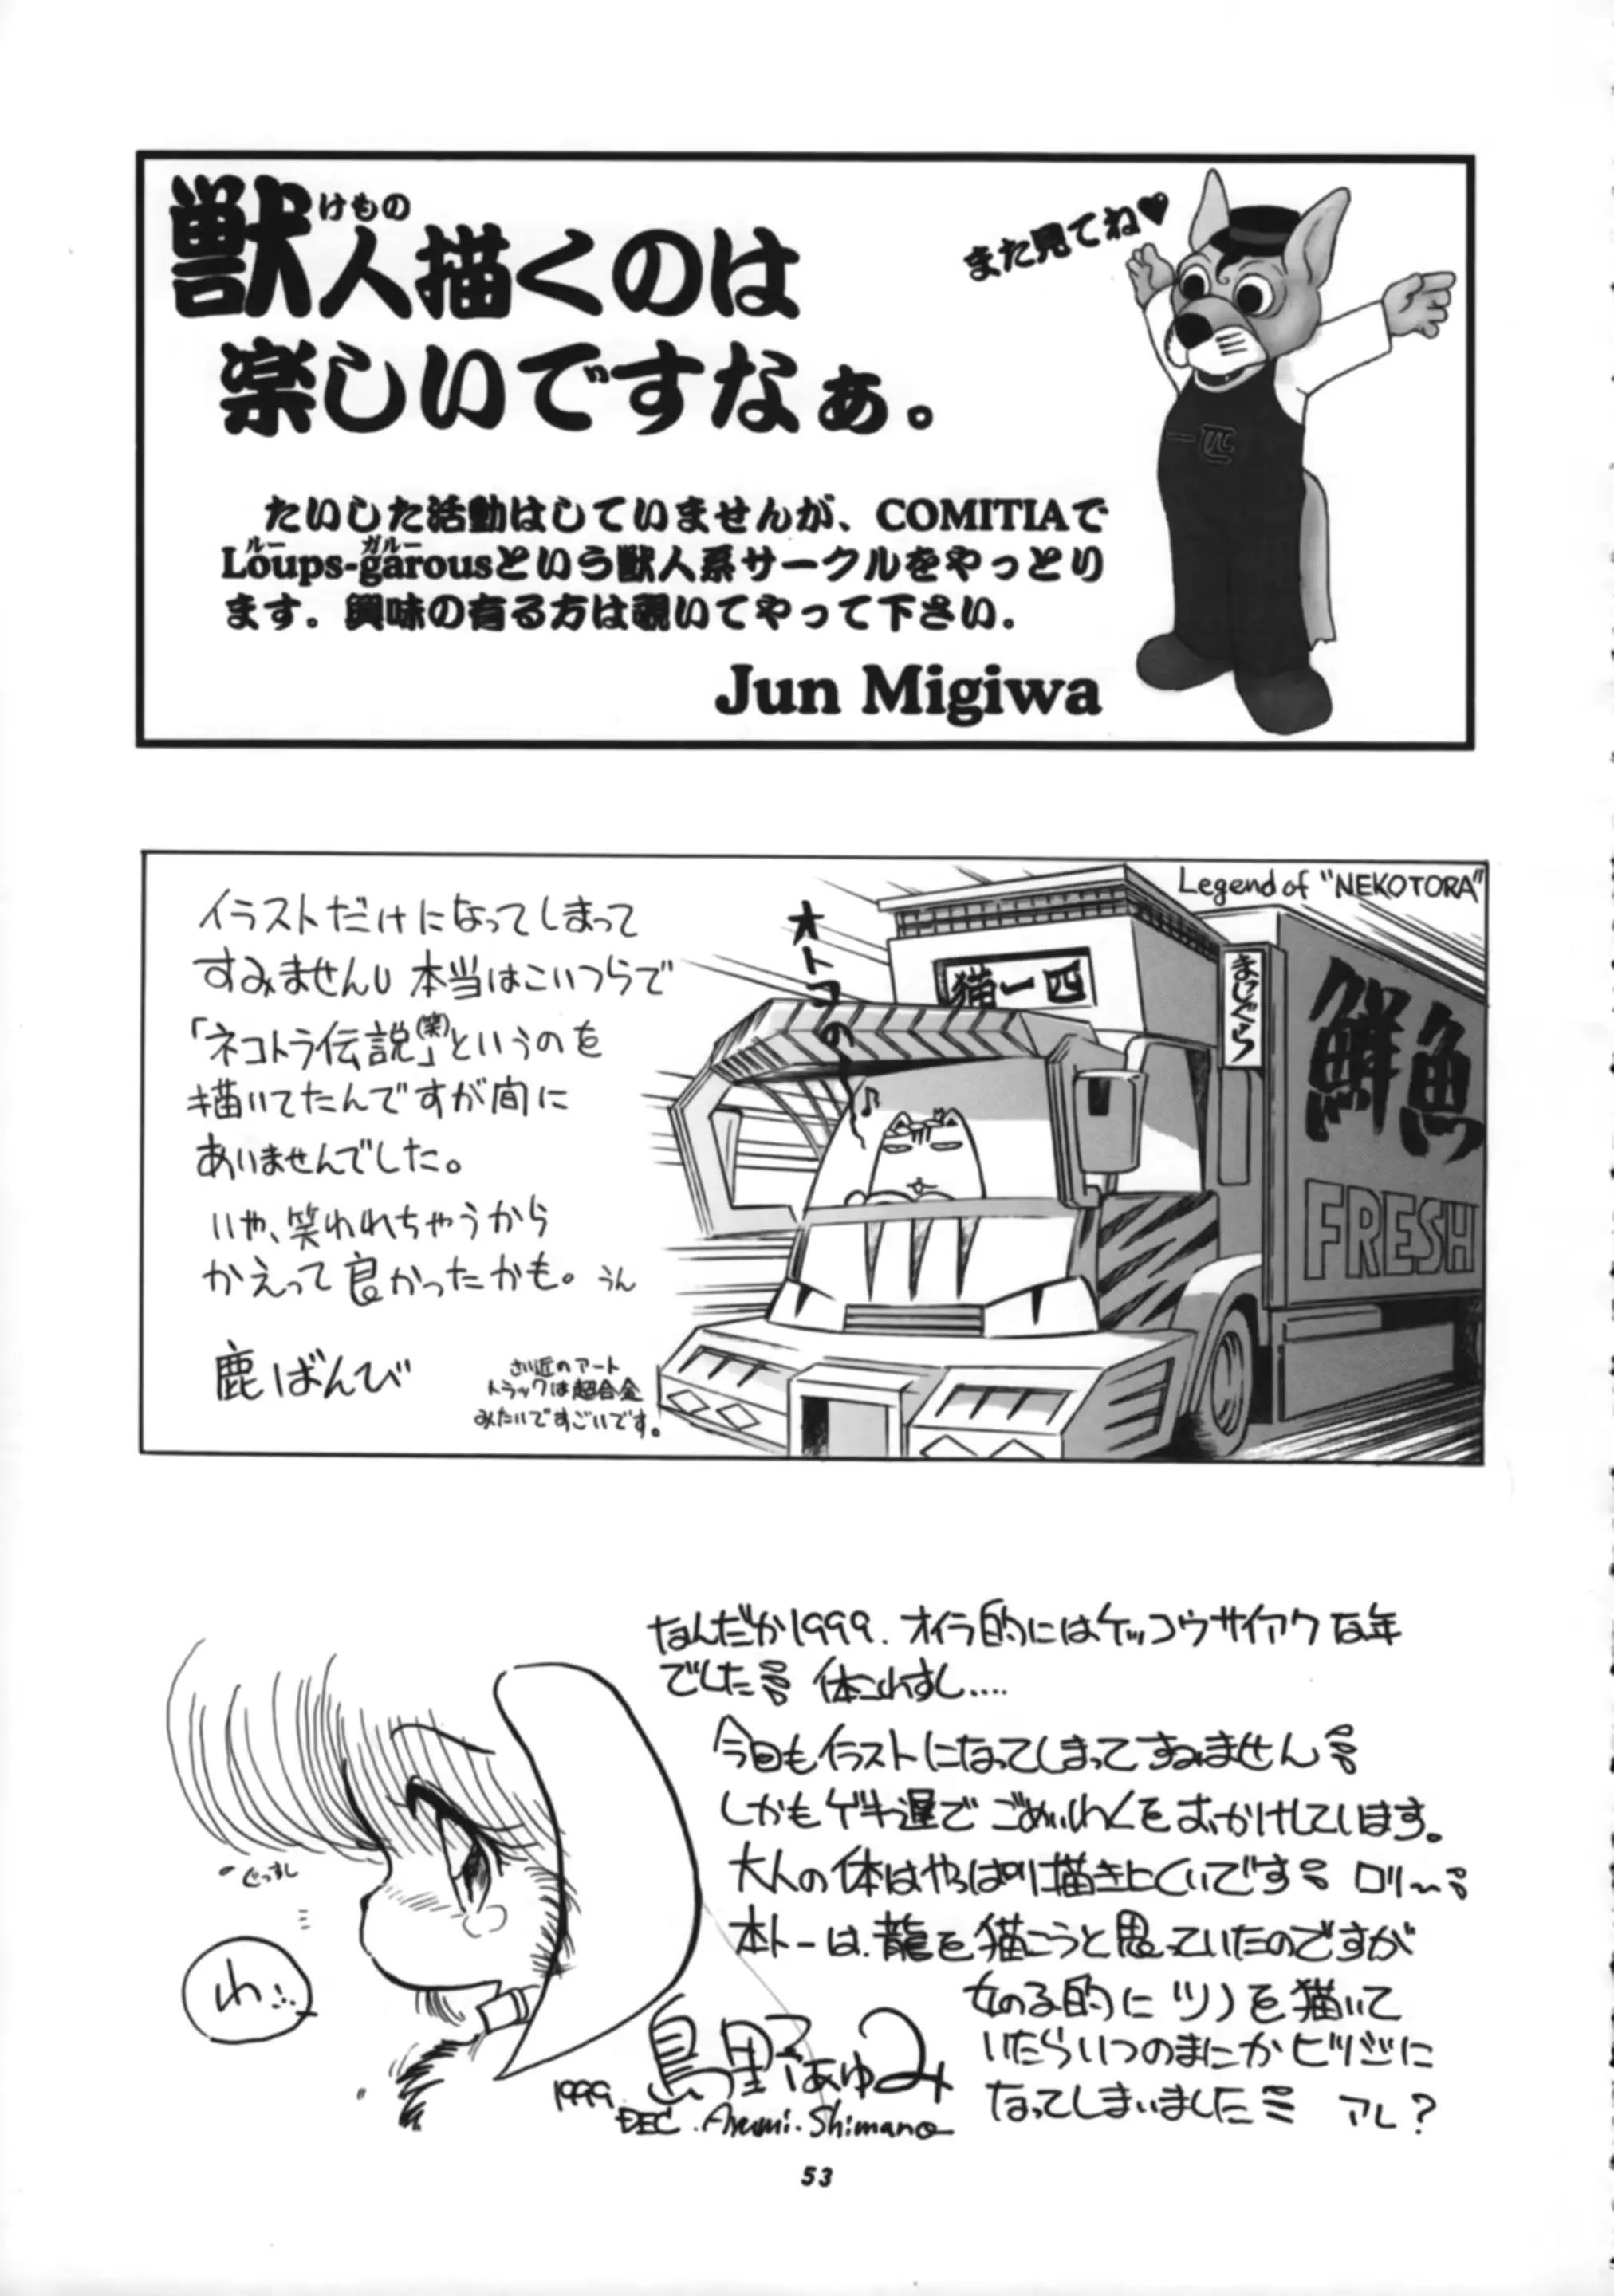 獣人描くのは
けもの
楽しいですなぁ。
また見てね♥
一匹
たいした活動はしていませんが、COMITIAで
ルー ガルー
Loups-garousという獣人系サークルをやっとり
ます。興味の有る方は覗いてやって下さい.
Jun Migiwa
イラストだけになってしまって
すみませんU 本当はこいつらで
「ネコトラ伝説(笑)」というのを
描いてたんですが間に
あいませんでした。
いや、笑われちゃうから
かえって良かったかも。うん
鹿ばんび
さい近のアート
トラックは超合金
みたいですごいです。
Legend of "NEKOTORA"
オトコの〜♪
猫一匹
まじぐら
鮮魚
FRESH
なんだか1999. オイラ的にはケッコウサイアクな年
でした 体こわすし....
今回もイラストになってしまってすみません
しかもゲキ遅でごめいわくをおかけしています。
大人の体はやっぱり描きにくいです ロリ〜
本トーは、龍を描こうと思っていたのですが
女のる的にツノを描いて
いたらいつのまにかヒツジに
なってしまいました アレ?
ぐっすし
わ...
島野あゆみ
1999.
DEC. Ayumi. Shimano
53